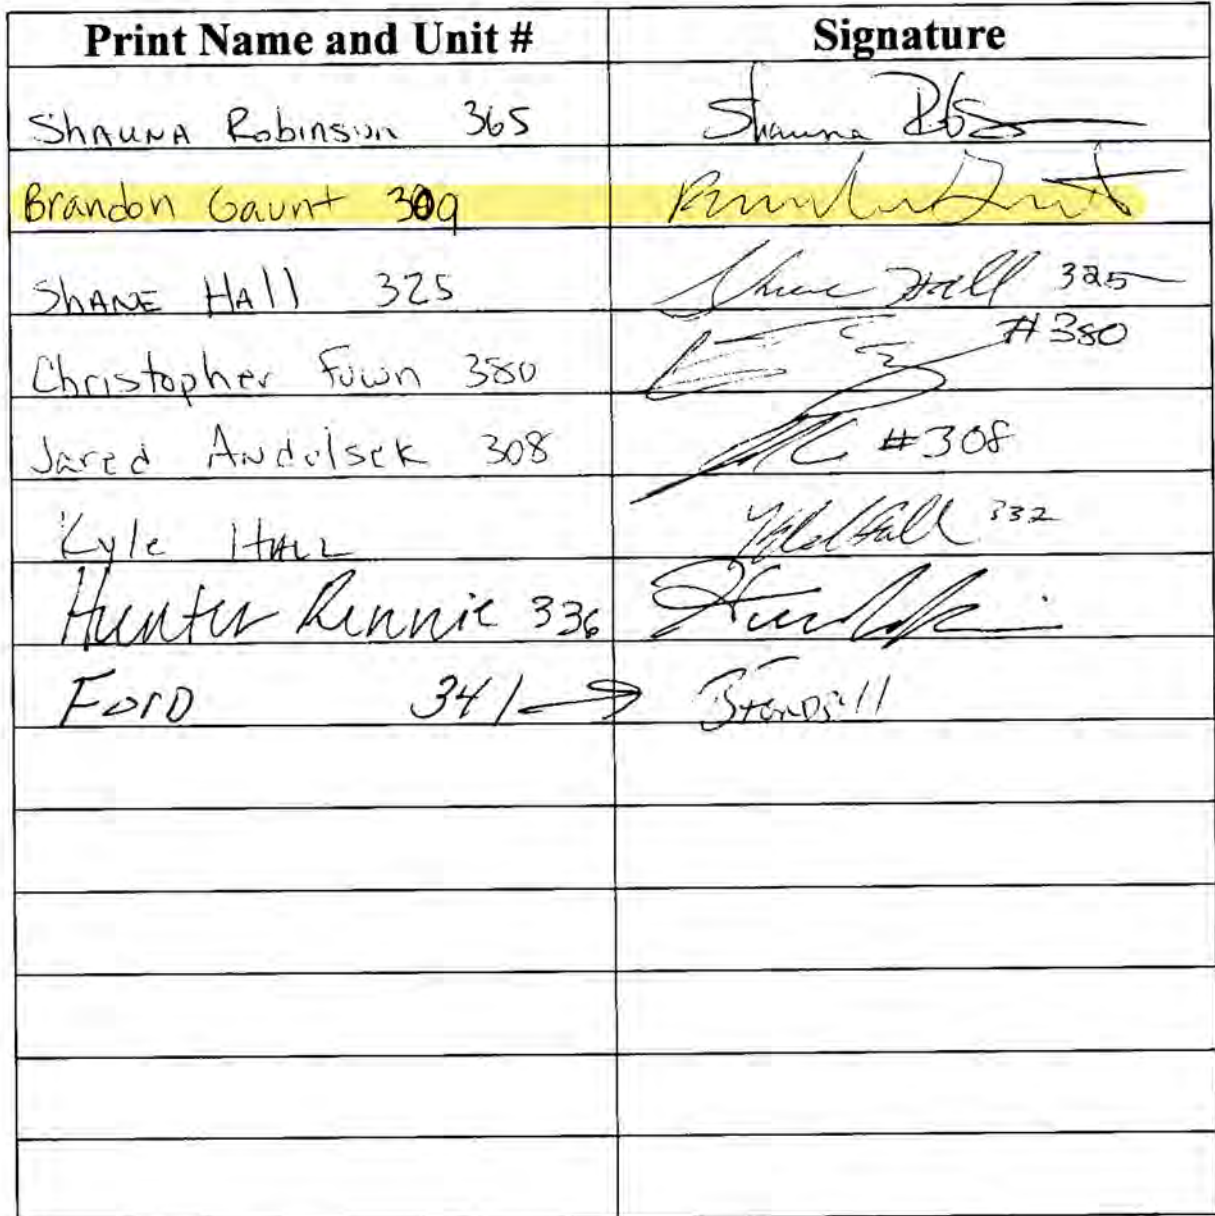 Print Name and Unit # Signature
SHAUNA Robinson 365 Shauna
Brandon Gaunt 309
SHANE HAll 325 Shane Hall 325
Christopher 380 #380
Jared Andolsek 308 #308
Kyle HALL Kyle Hall 332
Hunter Rennie 336
FORD 341 →